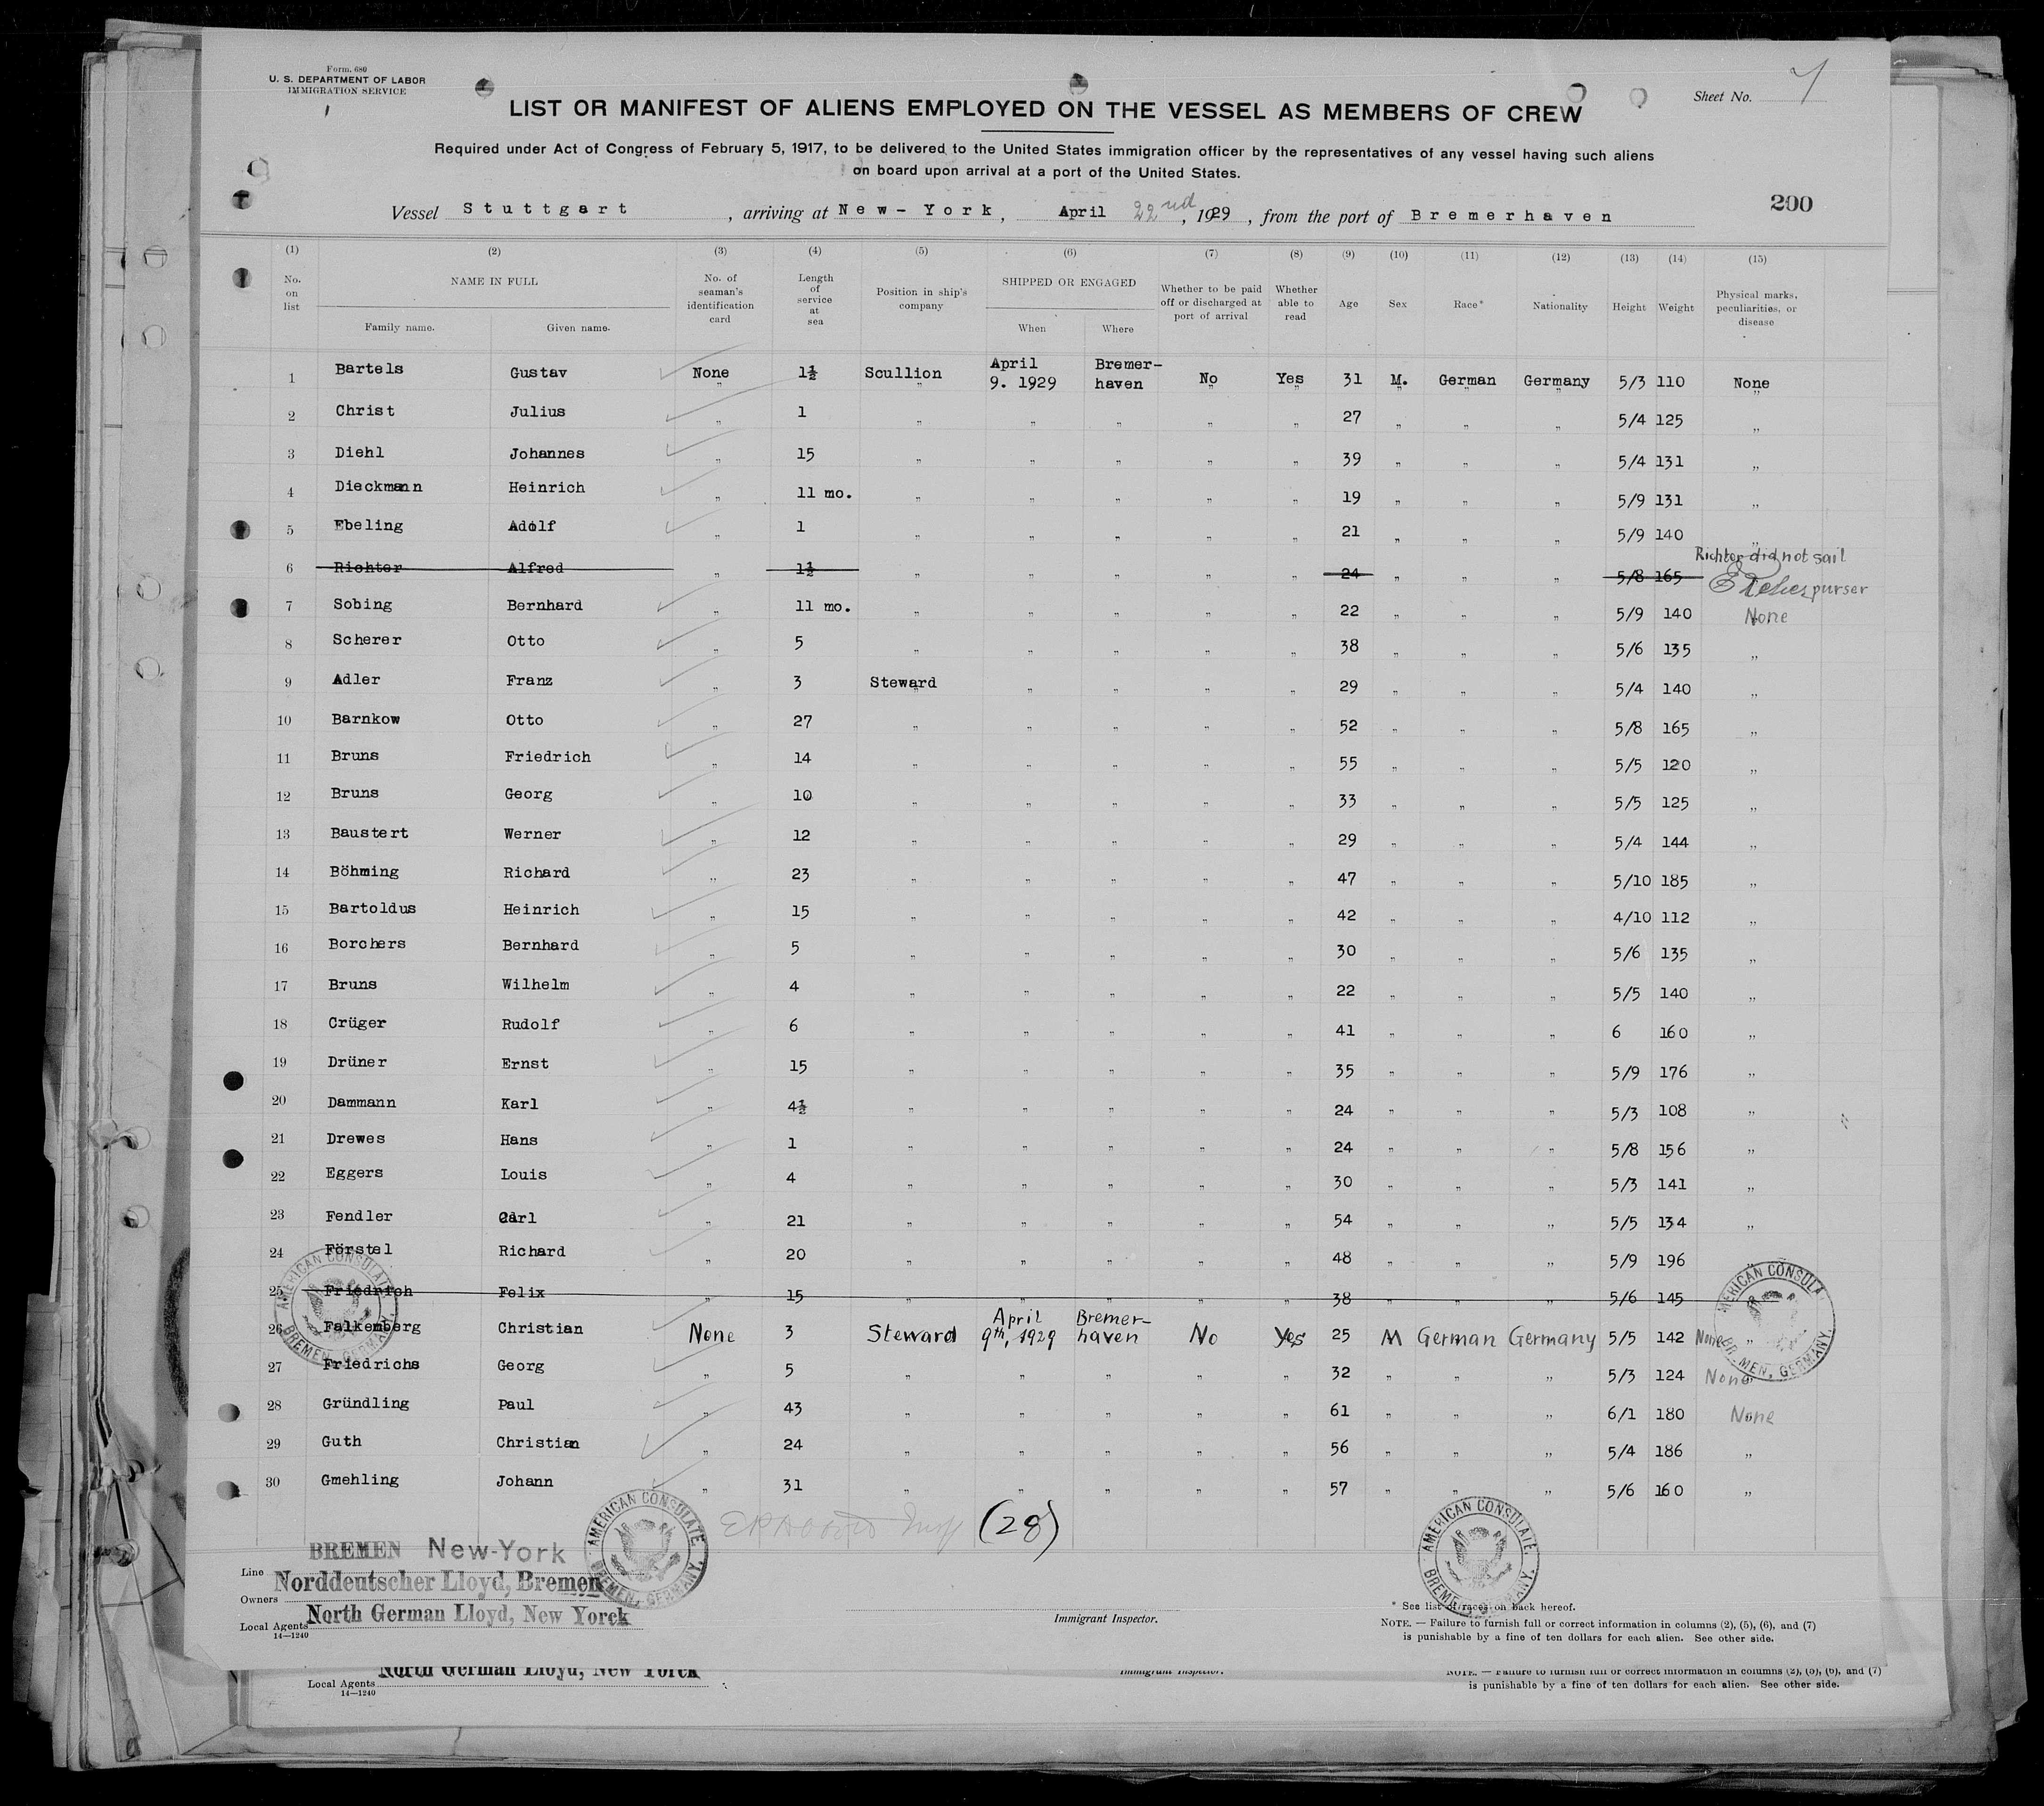 Form. 680
U. S. DEPARTMENT OF LABOR
IMMIGRATION SERVICE
Sheet No. 7
LIST OR MANIFEST OF ALIENS EMPLOYED ON THE VESSEL AS MEMBERS OF CREW
Required under Act of Congress of February 5, 1917, to be delivered to the United States immigration officer by the representatives of any vessel having such aliens
on board upon arrival at a port of the United States.
Vessel Stuttgart, arriving at New-York, April 22nd, 1929, from the port of Bremerhaven
200
(1) (2) (3) (4) (5) (6) (7) (8) (9) (10) (11) (12) (13) (14) (15)
No. on list NAME IN FULL Family name. Given name. No. of seaman's identification card Length of service at sea Position in ship's company SHIPPED OR ENGAGED When Where Whether to be paid off or discharged at port of arrival Whether able to read Age Sex Race* Nationality Height Weight Physical marks, peculiarities, or disease
1 Bartels Gustav None 1½ Scullion April 9. 1929 Bremer-haven No Yes 31 M. German Germany 5/3 110 None
2 Christ Julius " 1 " " " " " 27 " " " 5/4 125 "
3 Diehl Johannes " 15 " " " " " 39 " " " 5/4 131 "
4 Dieckmann Heinrich " 11 mo. " " " " " 19 " " " 5/9 131 "
5 Ebeling Adolf " 1 " " " " " 21 " " " 5/9 140 "
6 Richter Alfred " 1½ " " " " " 24 " " " 5/8 165 Richter did not sail
purser
7 Sobing Bernhard " 11 mo. " " " " " 22 " " " 5/9 140 None
8 Scherer Otto " 5 " " " " " 38 " " " 5/6 135 "
9 Adler Franz " 3 Steward " " " " 29 " " " 5/4 140 "
10 Barnkow Otto " 27 " " " " " 52 " " " 5/8 165 "
11 Bruns Friedrich " 14 " " " " " 55 " " " 5/5 120 "
12 Bruns Georg " 10 " " " " " 33 " " " 5/5 125 "
13 Baustert Werner " 12 " " " " " 29 " " " 5/4 144 "
14 Böhming Richard " 23 " " " " " 47 " " " 5/10 185 "
15 Bartoldus Heinrich " 15 " " " " " 42 " " " 4/10 112 "
16 Borchers Bernhard " 5 " " " " " 30 " " " 5/6 135 "
17 Bruns Wilhelm " 4 " " " " " 22 " " " 5/5 140 "
18 Crüger Rudolf " 6 " " " " " 41 " " " 6 160 "
19 Drüner Ernst " 15 " " " " " 35 " " " 5/9 176 "
20 Dammann Karl " 4½ " " " " " 24 " " " 5/3 108 "
21 Drewes Hans " 1 " " " " " 24 " " " 5/8 156 "
22 Eggers Louis " 4 " " " " " 30 " " " 5/3 141 "
23 Fendler Carl " 21 " " " " " 54 " " " 5/5 134 "
24 Förstel Richard " 20 " " " " " 48 " " " 5/9 196 "
25 Friedrich Felix " 15 " " " " " 38 " " " 5/6 145
26 Falkemberg Christian None 3 Steward April 9th, 1929 Bremer-haven No Yes 25 M German Germany 5/5 142 None "
27 Friedrichs Georg " 5 " " " " " 32 " " " 5/3 124 None
28 Gründling Paul " 43 " " " " " 61 " " " 6/1 180 None
29 Guth Christian " 24 " " " " " 56 " " " 5/4 186 "
30 Gmehling Johann " 31 " " " " " 57 " " " 5/6 160 "
AMERICAN CONSULATE BREMEN, GERMANY.
AMERICAN CONSULATE BREMEN, GERMANY.
AMERICAN CONSULATE. BREMEN, GERMANY.
AMERICAN CONSULATE. BREMEN, GERMANY.
(28)
Line BREMEN New-York
Owners Norddeutscher Lloyd, Bremen
Local Agents North German Lloyd, New Yorck
14—1240
Immigrant Inspector.
* See list of races on back hereof.
NOTE. — Failure to furnish full or correct information in columns (2), (5), (6), and (7)
is punishable by a fine of ten dollars for each alien. See other side.
North German Lloyd, New Yorck
Local Agents
14—1240
Immigrant Inspector.
NOTE. — Failure to furnish full or correct information in columns (2), (5), (6), and (7)
is punishable by a fine of ten dollars for each alien. See other side.